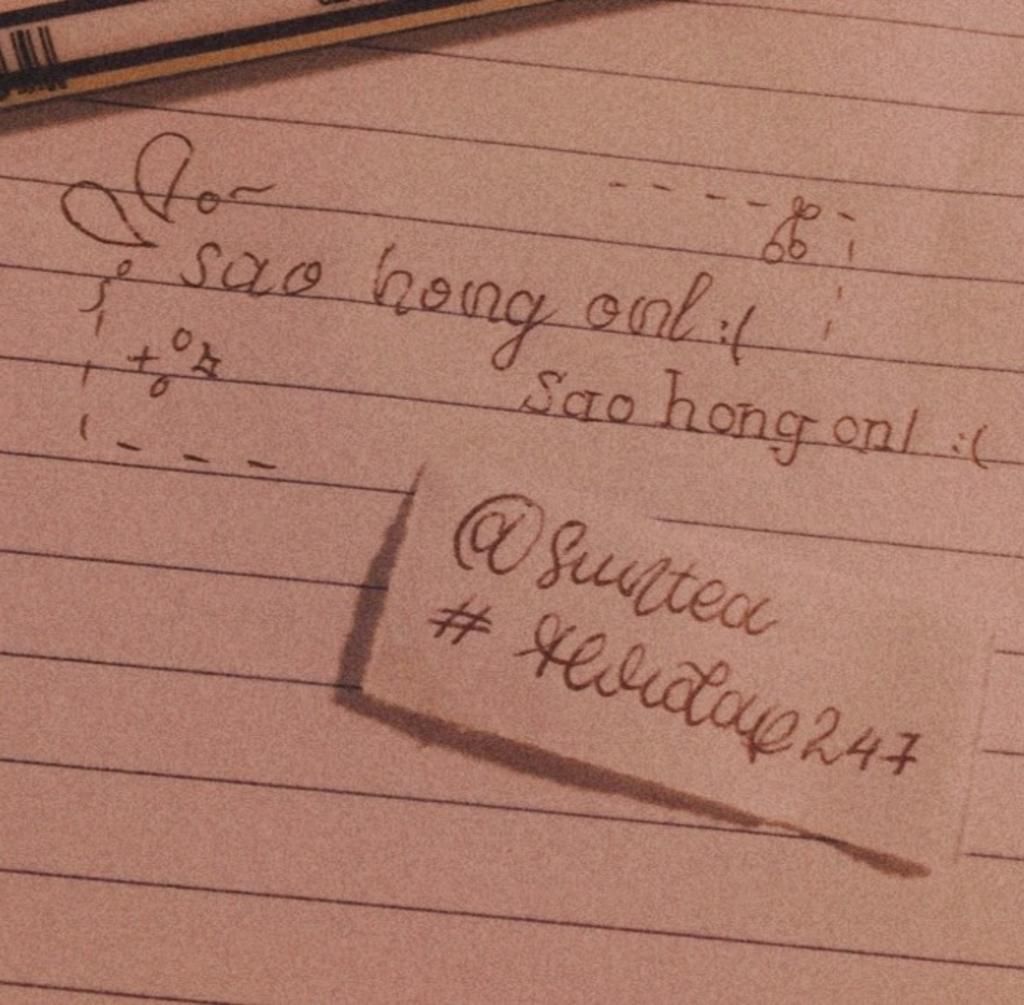 sao hong onl :(
sao hong onl :(
@Suntea
247